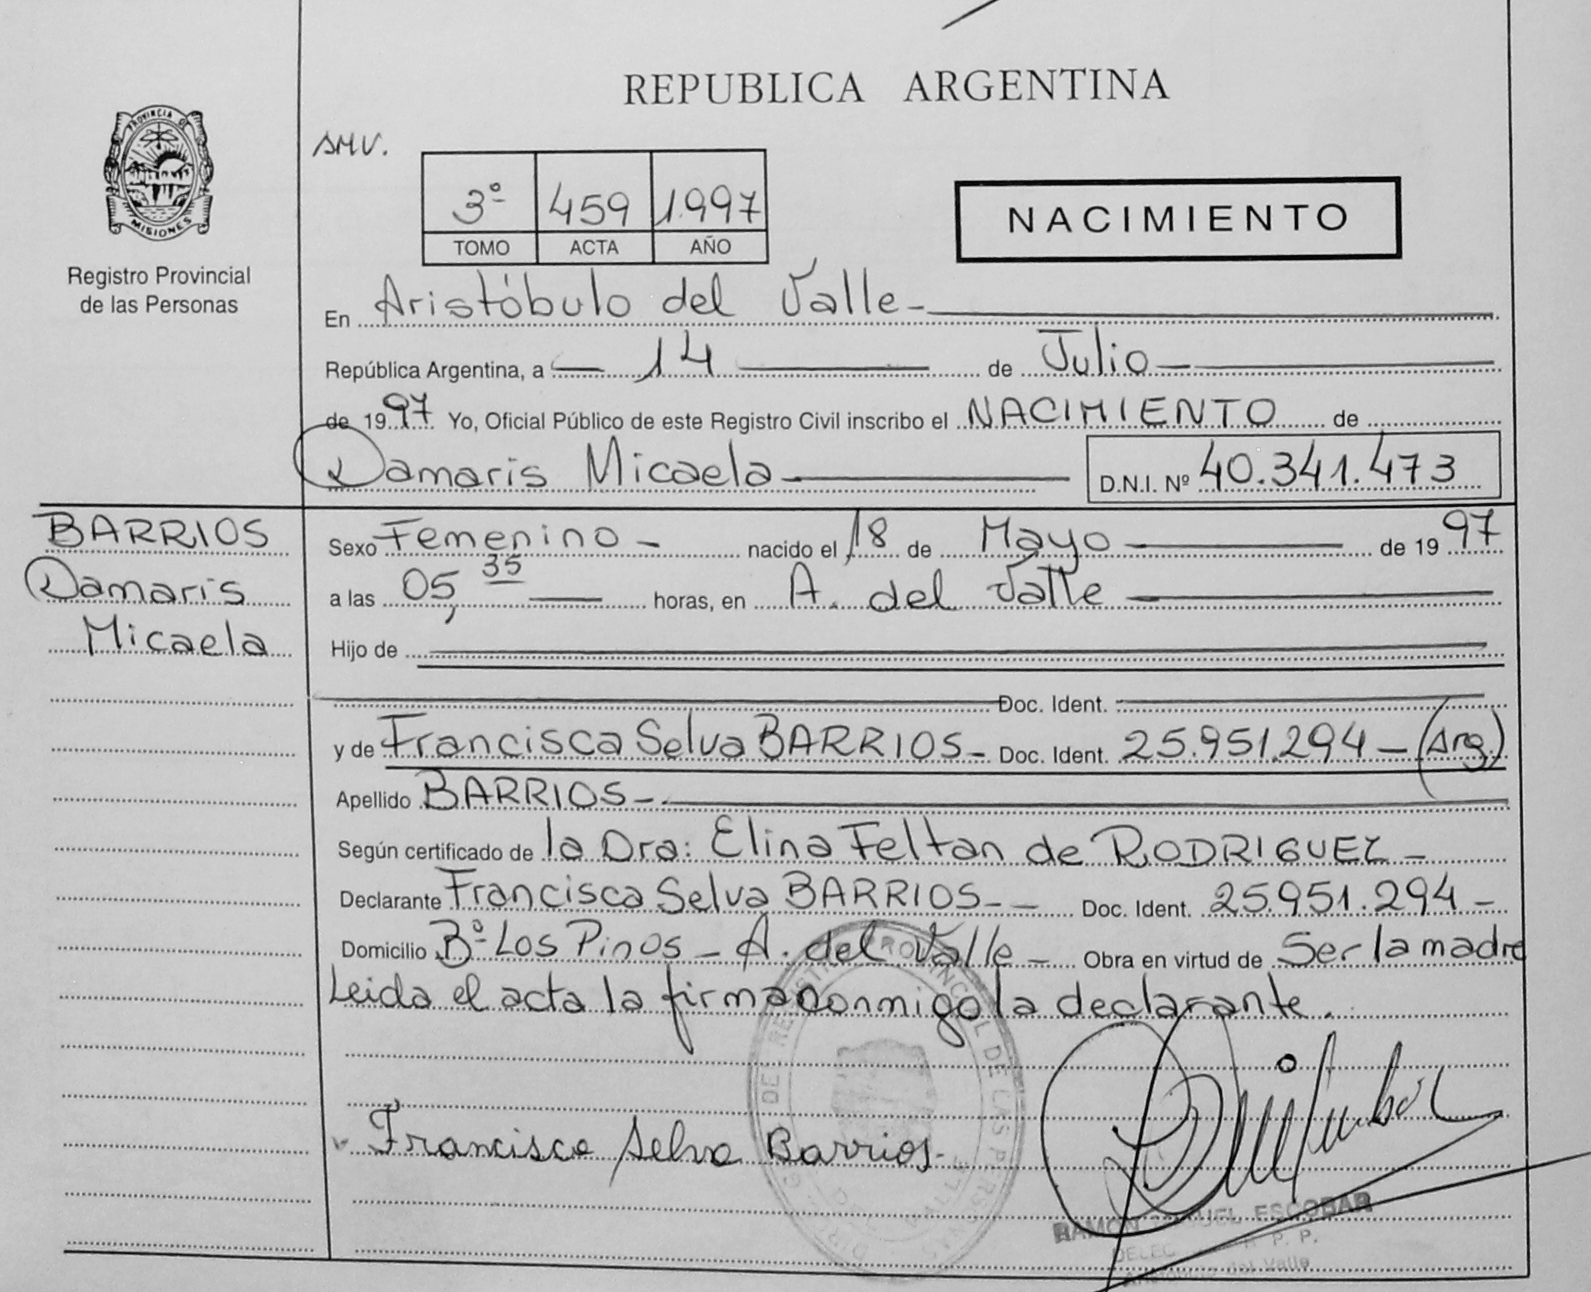 REPUBLICA ARGENTINA
PROVINCIA DE
MISIONES
Registro Provincial
de las Personas
SMV.
3º 459 1.997
TOMO ACTA AÑO
NACIMIENTO
En Aristóbulo del Valle-
República Argentina, a 14 de Julio
de 1997 Yo, Oficial Público de este Registro Civil inscribo el NACIMIENTO de
Damaris Micaela D.N.I. Nº 40.341.473
BARRIOS
Damaris
Micaela
Sexo Femenino - nacido el 18 de Mayo de 1997
a las 05,35 horas, en A. del Valle
Hijo de
Doc. Ident.
y de Francisca Selva BARRIOS- Doc. Ident. 25.951.294 - (Arg.)
Apellido BARRIOS-
Según certificado de la Dra: Elina Feltan de RODRIGUEZ -
Declarante Francisca Selva BARRIOS-- Doc. Ident. 25.951.294 -
Domicilio Bº Los Pinos - A. del Valle - Obra en virtud de Ser la madre
Leida el acta la firma conmigo la declarante.
Francisca Selva Barrios-
RAMON ESCOBAR
del Valle